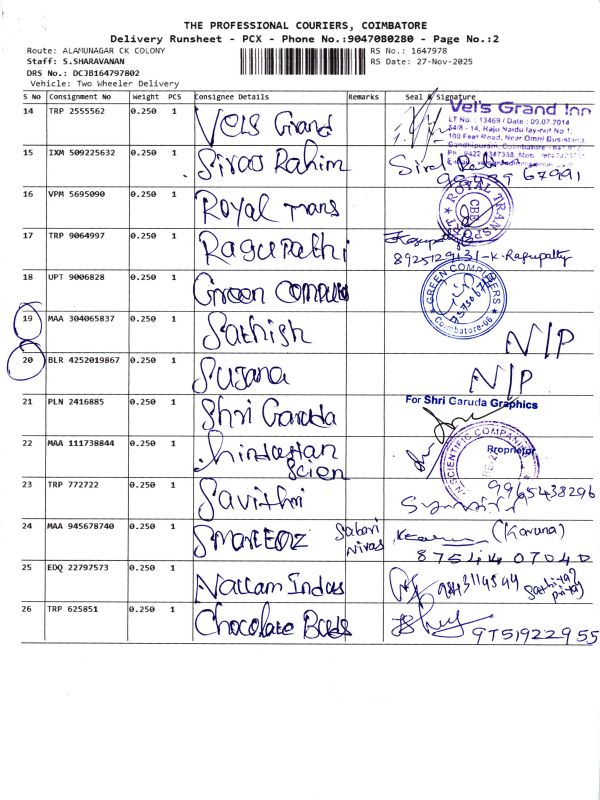 THE PROFESSIONAL COURIERS, COIMBATORE
Delivery Runsheet - PCX - Phone No.:9047080280 - Page No.:2
Route: ALAMUNAGAR CK COLONY RS No.: 1647978
Staff: S.SHARAVANAN RS Date: 27-Nov-2025
DRS No.: DCJB164797802
Vehicle: Two Wheeler Delivery
S No Consignment No Weight PCS Consignee Details Remarks Seal & Signature
14 TRP 2555562 0.250 1 Vels Grand
Vel's Grand Inn
LT No. : 13469 / Date : 09.07.2014
54/8 - 14, Raju Naidu lay-out No 1,
100 Feet Road, Near Omni Bus stand,
Gandhipuram, Coimbatore
15 IXM 509225632 0.250 1 Sivao Rahim
16 VPM 5695090 0.250 1 Royal Trans
ROYAL TRANSPORT
CBE
17 TRP 9064997 0.250 1 Ragupathi
8925129131 - K. Ragupathy
18 UPT 9006828 0.250 1 Green Compu
GREEN COMPUTERS
Coimbatore-06
19 MAA 304065837 0.250 1 Sathish N/P
20 BLR 4252019867 0.250 1 Sujana N/P
21 PLN 2416885 0.250 1 Shri Garuda
For Shri Garuda Graphics
Proprietor
22 MAA 111738844 0.250 1 hindustan
Scien
SCIENTIFIC COMPANY
23 TRP 772722 0.250 1 Savithri 9965438296
24 MAA 945678740 0.250 1 Smart EOZ Sabari (Karuna)
Nivas 8754407040
25 EDQ 22797573 0.250 1 Nallam Indus
26 TRP 625851 0.250 1 Chocolate Buds 9751922955